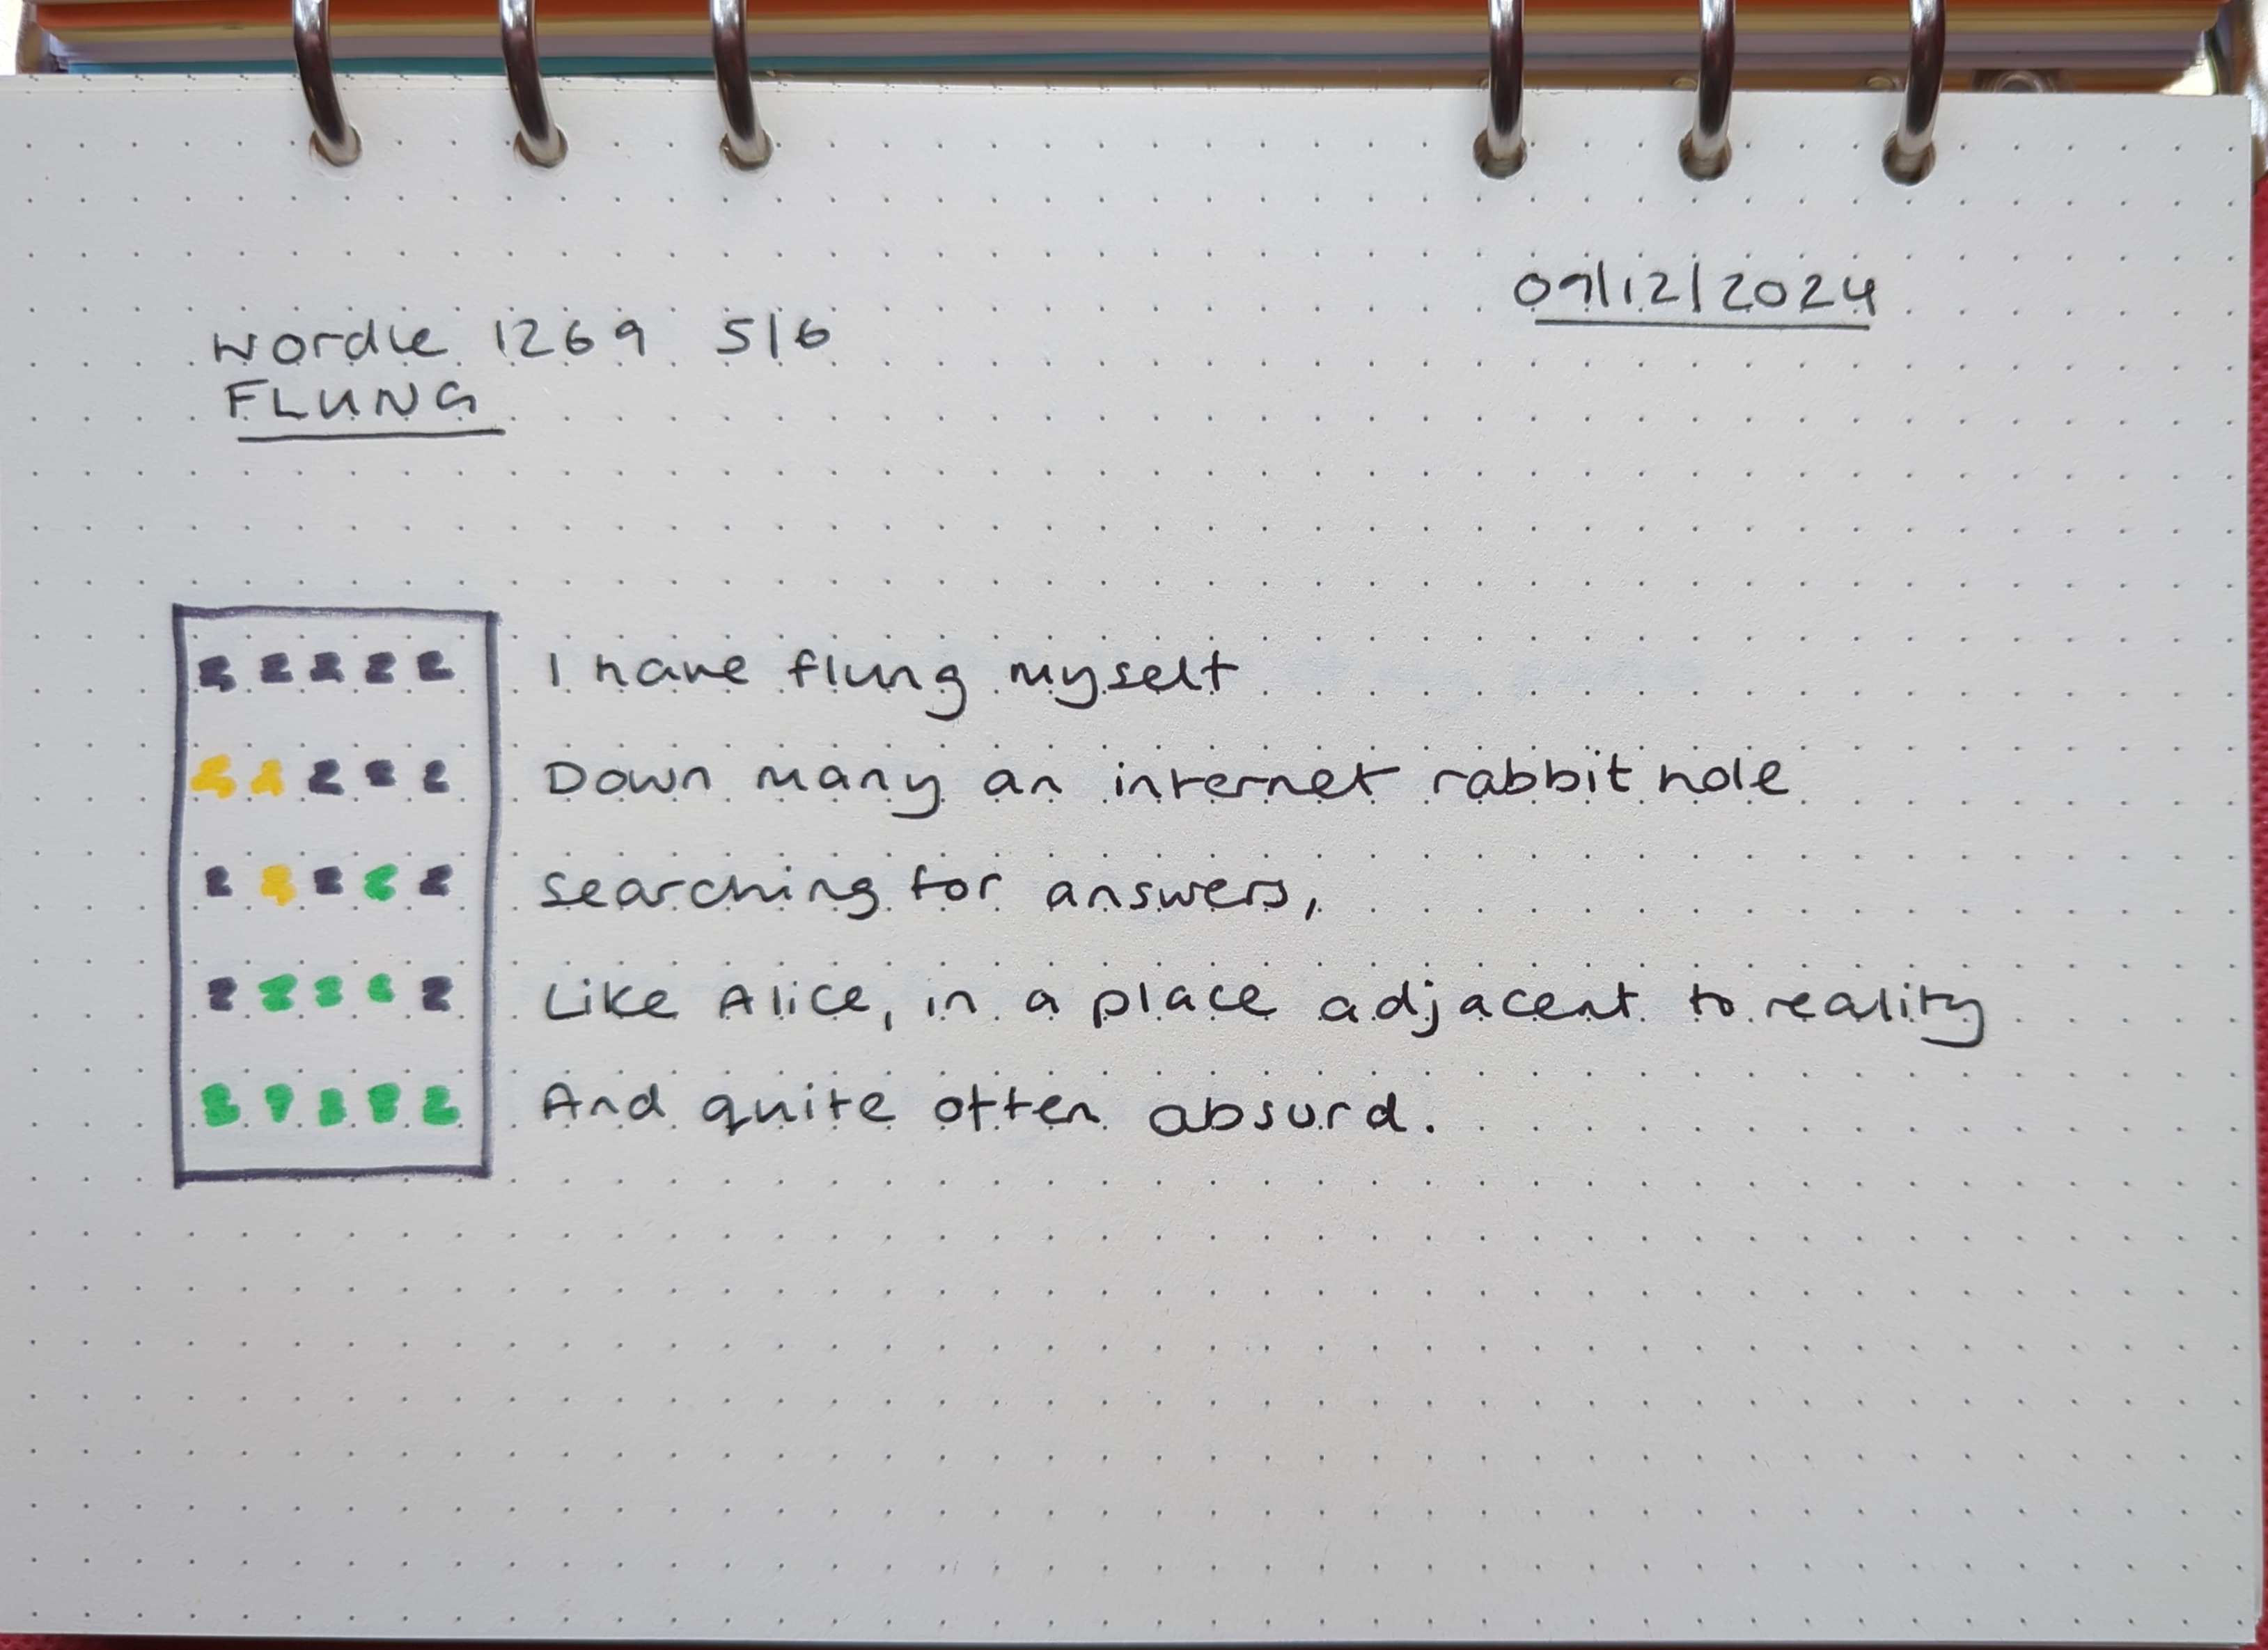 09/12/2024
Wordle 1269 5/6
FLUNG
I have flung myself
Down many an internet rabbit hole
Searching for answers,
Like Alice, in a place adjacent to reality
And quite often absurd.